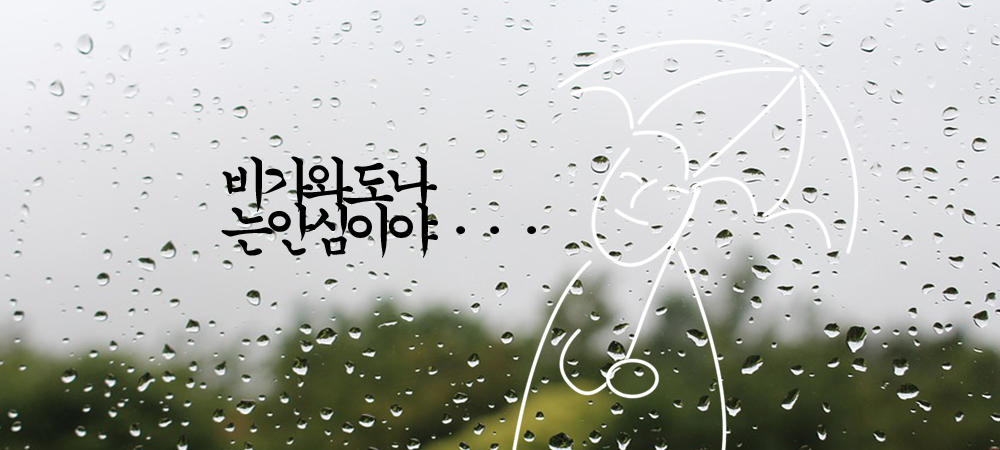 비가와도나
는안심이야 · · ·